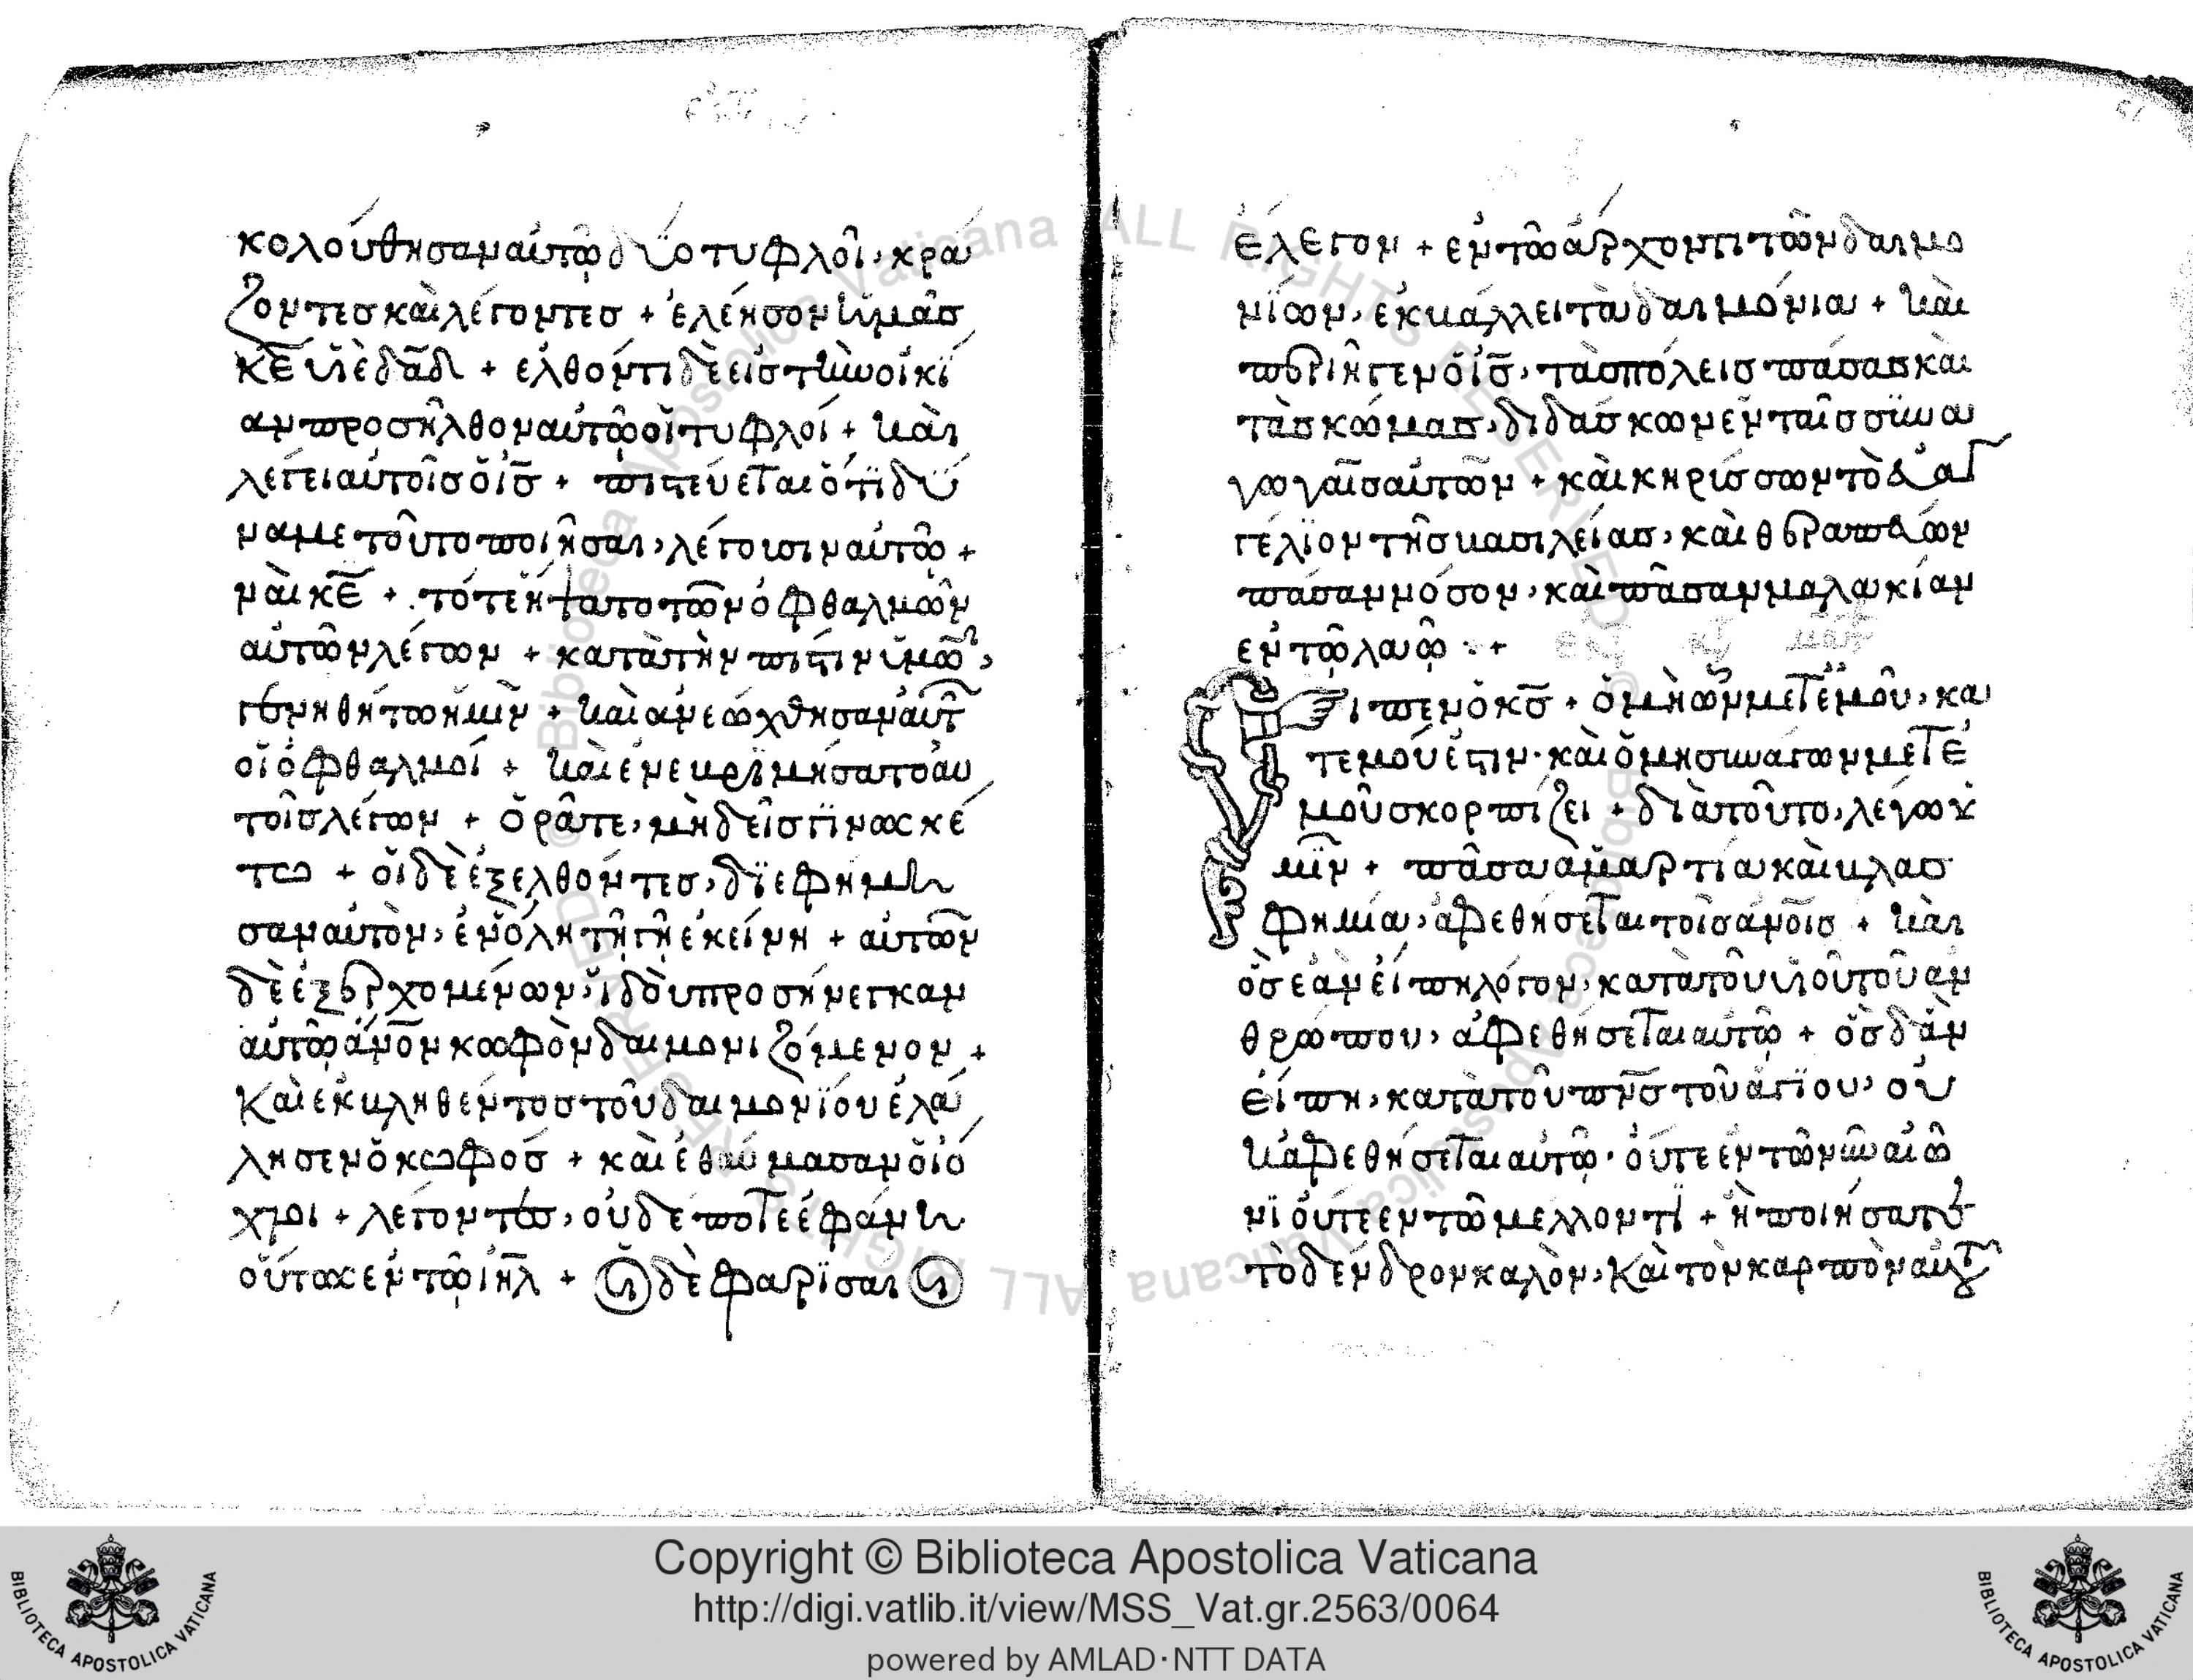 κολούθησαν αὐτῶ δύο τυφλοῖ, κρά
ζοντεσ καὶ λέγοντεσ + ἐλέησον ἡμᾶσ
κε̅ υἱὲ δα̅δ + ελθόντι δὲ εἰσ τὴν οἰκί
αν προσῆλθον αὐτῶ οἱ τυφλοί + καὶ
λέγει αὐτοῖσ ὁ ισ̅ + πιστεύεται ὅτι δύ
ναμε τοῦτο ποιῆσαι, λέγουσιν αὐτῶ +
ναὶ κε̅ + τότε ἥψατο τῶν ὀφθαλμῶν
αὐτῶν λέγων + κατὰ τὴν πίστιν ὑμῶ,
γενηθήτω ἡμῖν + καὶ ἀνεώχθησαν αὐτ
οἱ ὀφθαλμοί + καὶ ἐνεβριμήσατο αυ
τοῖσ λέγων + ὁρᾶτε, μηδεὶσ γινωσκέ
τω + οἱ δὲ ἐξελθόντεσ, διεφήμη
σαν αὐτὸν, ἐν ὅλη τῆ γῆ ἐκείνη + αὐτῶν
δὲ ἐξερχομένων, ἰδοὺ προσήνεγκαν
αὐτῶ ἄνο̅ν κωφὸν δαιμονιζόμενον +
Καὶ ἐκβληθέντοσ τοῦ δαιμονίου ἐλά
λησεν ὁ κωφόσ + καὶ ἐθαύμασαν οἱ ὄ
χλοι + λέγοντεσ, οὐδέποτε ἐφάνη
οὕτωσ εν τῶ ιη̅λ + Οἱ δὲ φαρισαῖοι
ἔλεγον + εν τῶ ἄρχοντι τῶν δαιμο
νίων, ἐκβάλλει τὰ δαιμόνια + καὶ
περιῆγεν ὁ ισ̅, τὰσ πόλεισ πάσασ καὶ
τὰσ κώμασ, διδάσκων ἐν ταῖσ συνα
γωγαῖσ αὐτῶν + καὶ κηρίσσων τὸ εὐαγ
γέλιον τῆσ βασιλείασ, καὶ θεραπεύων
πάσαν νόσον, καὶ πᾶσαν μαλακίαν
εν τῶ λαῶ +
Εἶπεν ὁ κσ̅ + ὁ μὴ ὢν μετ ἐμοῦ, κα
τ εμοῦ ἐστιν. καὶ ὁ μη συναγων μετ ἐ
μοῦ σκορπίζει + διὰ τοῦτο, λεγω ὑ
μῖν + πᾶσα ἁμαρτία καὶ βλασ
φημία, ἀφεθήσεται τοῖσ ἀνοισ + καὶ
ὃσ ἐὰν εἴπη λόγον, κατὰ τοῦ υἱοῦ τοῦ αν
θρώπου, ἀφεθήσεται αὐτῶ + ὃσ δ ἂν
εἴπη, κατὰ τοῦ πνσ̅ τοῦ ἁγίου, οὐ
κ ἀφεθήσεται αὐτῶ. οὔτε ἐν τῶ νῦν αἰῶ
νι οὔτε εν τῶ μελλοντι + ἢ ποιήσατε
τὸ δένδρον καλὸν, Καὶ τὸν καρπὸν αὐτοῦ
Copyright © Biblioteca Apostolica Vaticana
http://digi.vatlib.it/view/MSS_Vat.gr.2563/0064
powered by AMLAD·NTT DATA